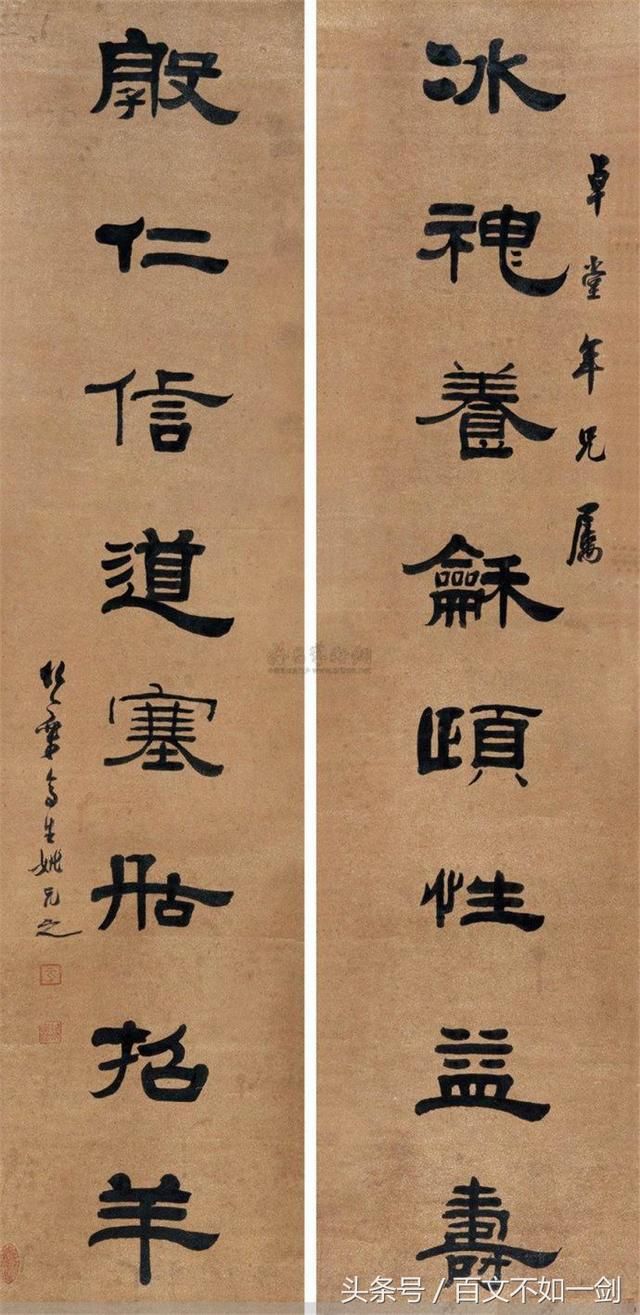 卓堂年兄屬
冰神養龢頤性益壽
仁信道塞招羊
竹葉亭生姚元之
头条号 / 百文不如一剑